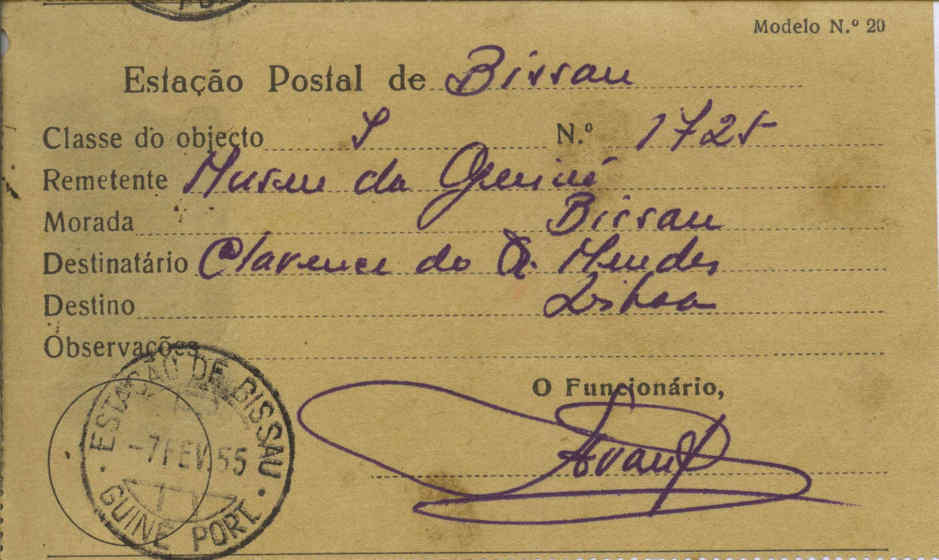 Modelo N.º 20
Estação Postal de Bissau
Classe do objecto N.º 1725
Remetente Museu da Guiné
Morada Bissau
Destinatário Clarence do A. Mendes
Destino Lisboa
Observações
O Funcionário,
ESTAÇÃO DE BISSAU
-7 FEV. 55
GUINÉ PORT.